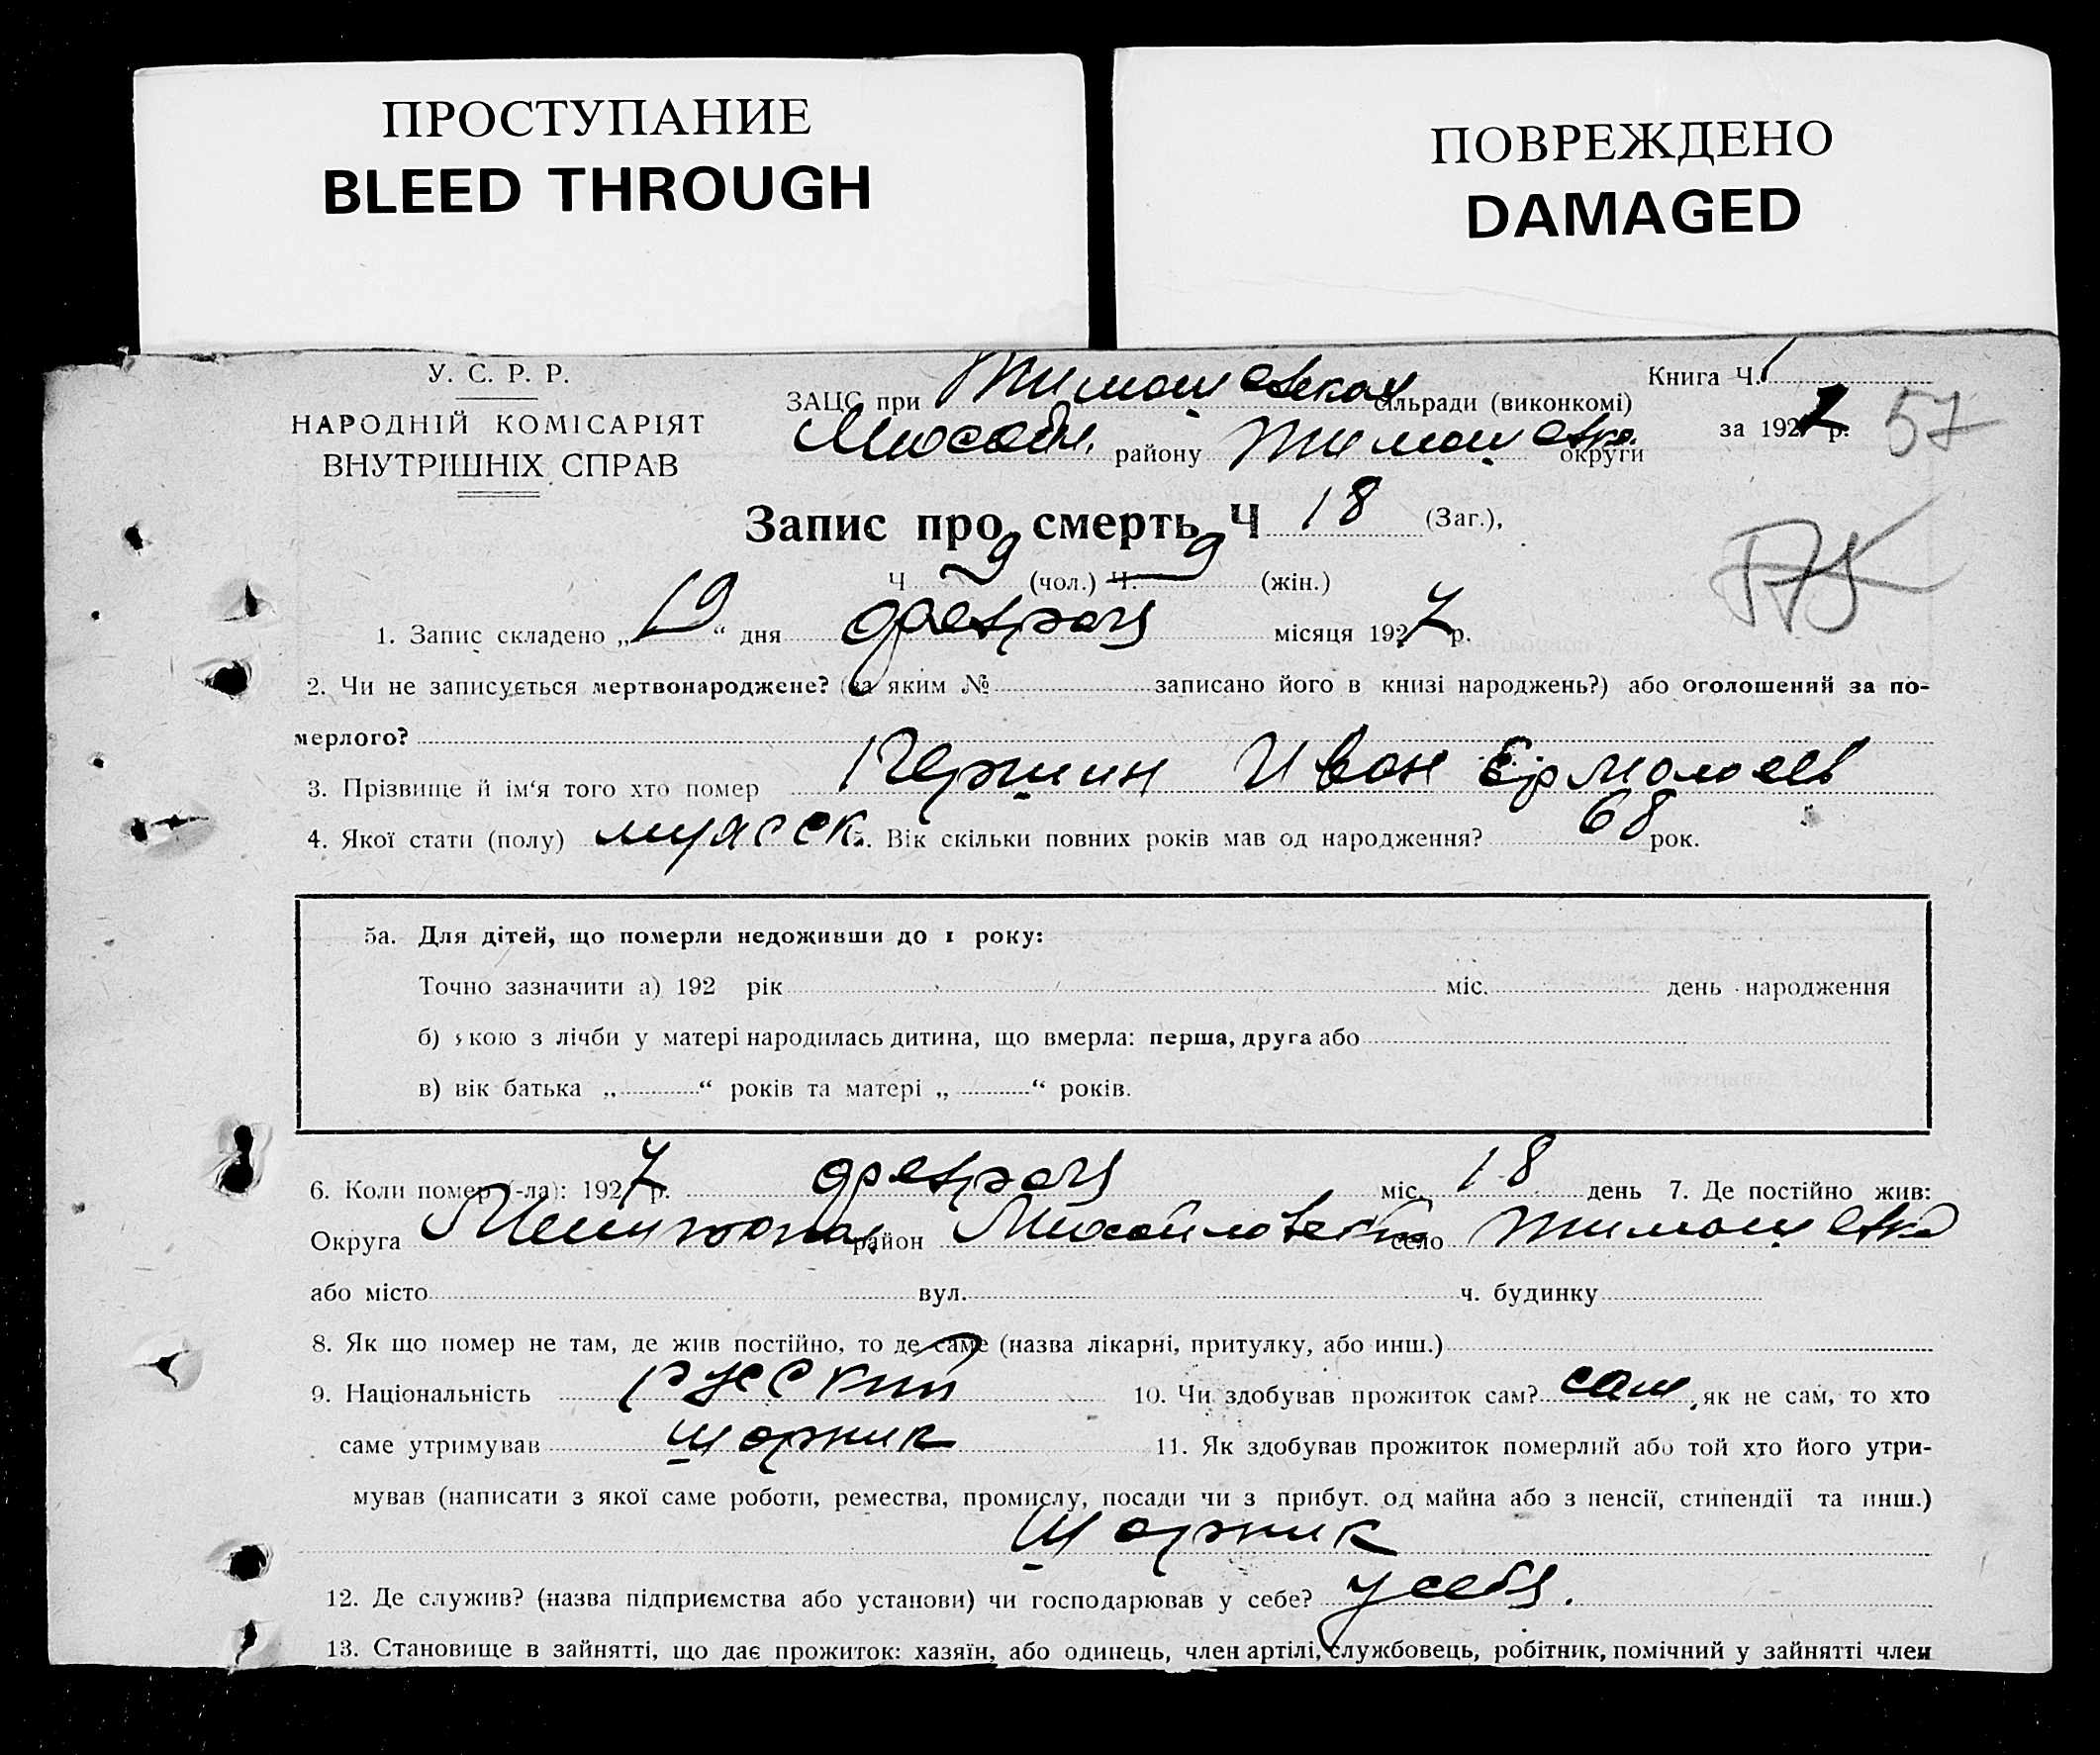 ПРОСТУПАНИЕ
BLEED THROUGH
ПОВРЕЖДЕНО
DAMAGED
У. С. Р. Р.
НАРОДНІЙ КОМІСАРІЯТ
ВНУТРІШНІХ СПРАВ
Книга Ч. 1
ЗАЦС при Тимошевской сільради (виконкомі)
за 1927 р. 57
Михайл. району Тимошевка округи
Запис про смерть Ч 18 (Заг.),
Ч 9 (чол.) Ч. 9 (жін.)
1. Запис складено „19“ дня февраля місяця 1927 р.
2. Чи не записується мертвонароджене? (за яким № записано його в книзі народжень?) або оголошений за по-
мерлого?
3. Прізвище й ім'я того хто помер Першин Иван Ермолаев
4. Якої стати (полу) мужеск 5. Вік скільки повних років мав од народження? 68 рок.
5а. Для дітей, що померли недоживши до 1 року:
Точно зазначити а) 192 рік міс. день народження
б) якою з лічби у матері народилась дитина, що вмерла: перша, друга або
в) вік батька „ “ років та матері „ “ років.
6. Коли помер (-ла): 1927 р. февраля міс. 18 день 7. Де постійно жив:
Округа район Михайловский село Тимошевка
або місто вул. ч. будинку
8. Як що помер не там, де жив постійно, то де саме (назва лікарні, притулку, або инш.)
9. Національність русский 10. Чи здобував прожиток сам? сам, як не сам, то хто
саме утримував шорник 11. Як здобував прожиток померлий або той хто його утри-
мував (написати з якої саме роботи, ремества, промислу, посади чи з прибут. од майна або з пенсії, стипендії та инш.)
шорник
12. Де служив? (назва підприємства або установи) чи господарював у себе? у себя.
13. Становище в зайнятті, що дає прожиток: хазяїн, або одинець, член артілі, службовець, робітник, помічний у зайнятті член